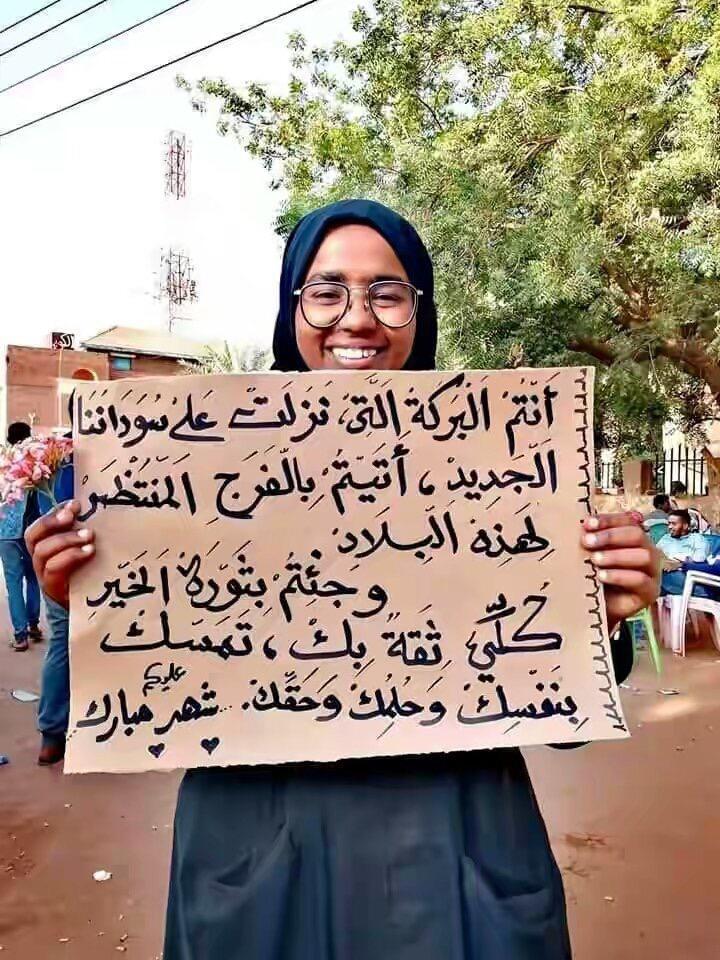 أَنْتُمْ الْبَرَكَةُ الَّتِي نَزَلَتْ عَلَىٰ سُودَانِنَا
الْجَدِيدْ ، أَتَيْتُمْ بِالْفَرَجِ الْمُنْتَظَرْ
لِهَذِهِ الْبِلَادِ
وَجِئْتُمْ بِثَوْرَةِ الْخَيْرِ
كُلِّي ثِقَةٌ بِكْ ، تَمَسَّكْ
بِنَفْسِكْ وَحُلْمِكْ وَحَقِّكْ. شهر مبارك عليكم